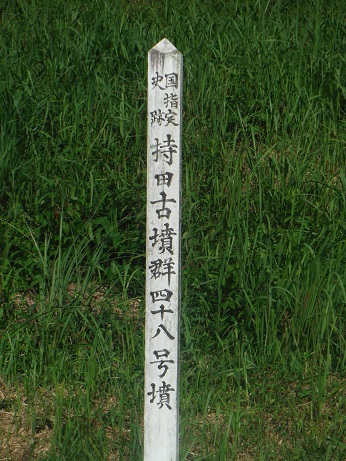 国指定
史跡
持田古墳群四十八号墳